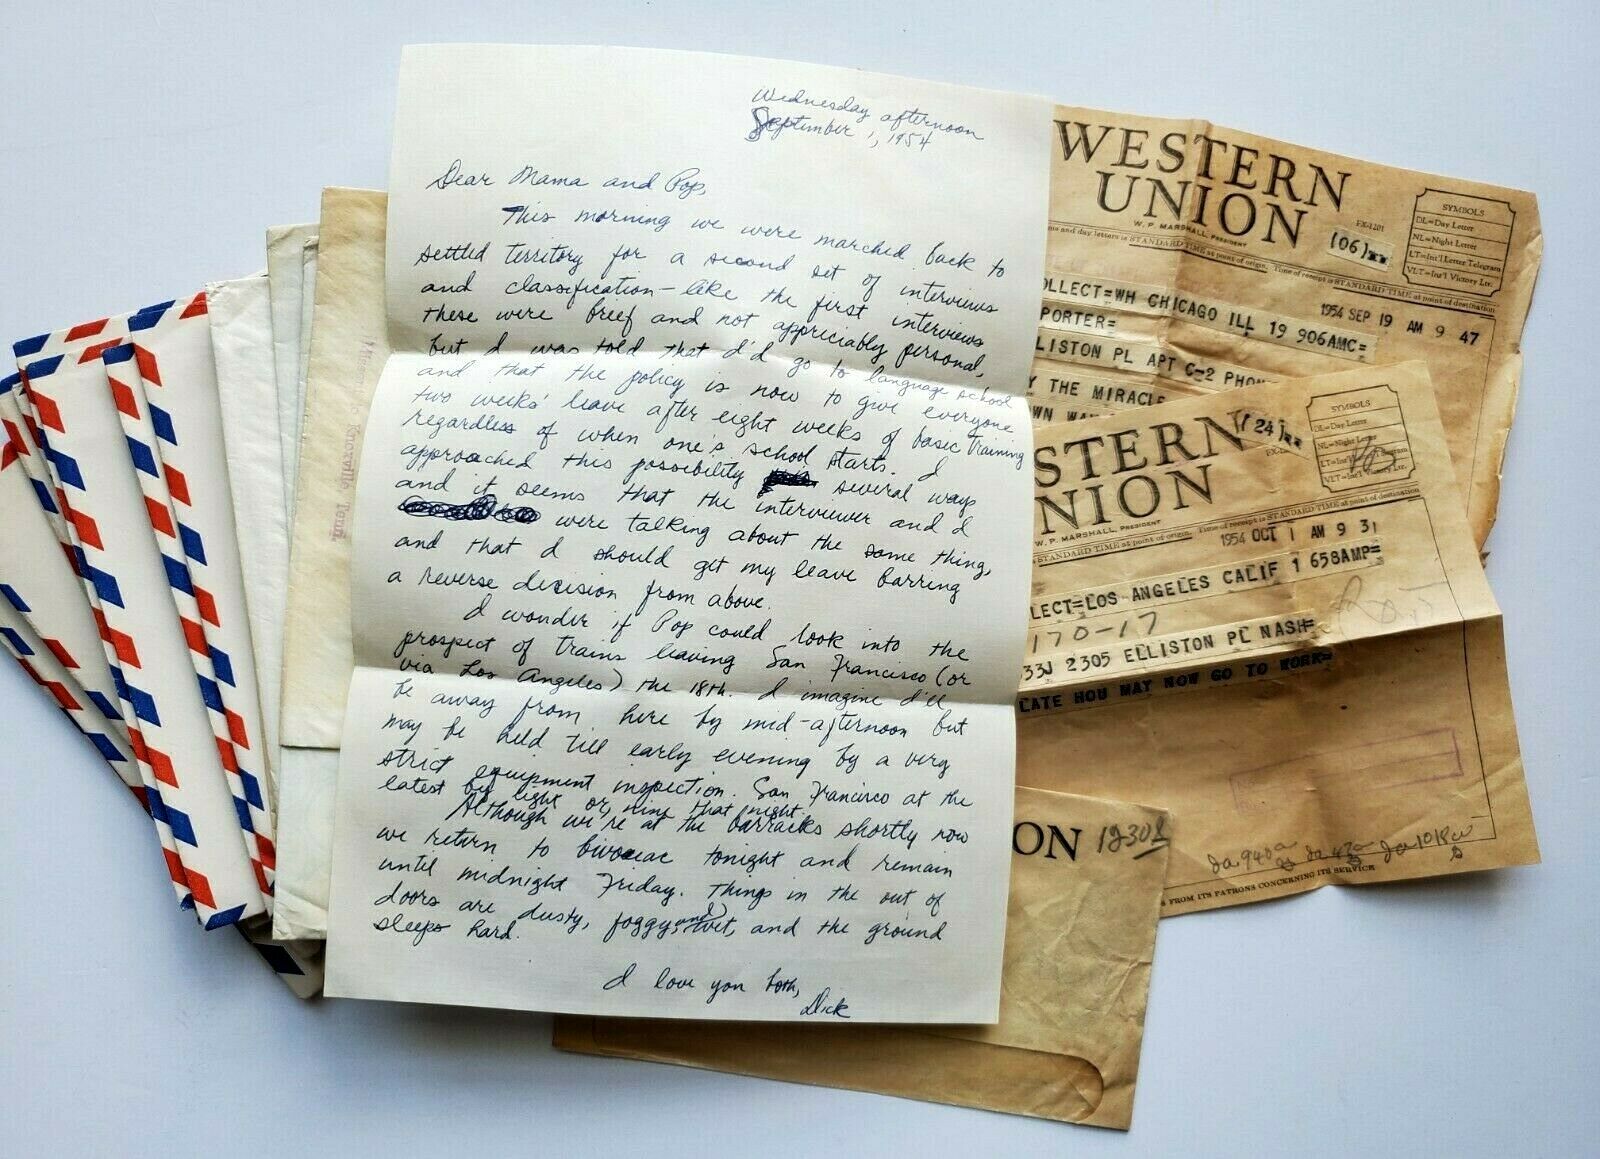 Wednesday afternoon
September 1, 1954
Dear Mama and Pop,
This morning we were marched back to
settled territory for a second set of interviews
and classification - like the first interviews
these were breef and not appriciably personal,
but I was told that I'd go to language school
and that the policy is now to give everyone
two weeks' leave after eight weeks of basic training
regardless of when one's school starts. I
approached this possibility several ways
and it seems that the interviewer and I
were talking about the same thing,
and that I should get my leave barring
a reverse decision from above.
I wonder if Pop could look into the
prospect of trains leaving San Francisco (or
via Los Angeles) the 18th. I imagine I'll
be away from here by mid-afternoon but
may be held till early evening by a very
strict equipment inspection. San Francisco at the
latest by eight or nine that night.
Although we're at the barracks shortly now
we return to bivouac tonight and remain
until midnight Friday. Things in the out of
doors are dusty, foggy, and wet, and the ground
sleeps hard.
I love you both,
Dick
Knoxville, Tenn.
WESTERN
UNION
W. P. MARSHALL, PRESIDENT
FX-1201
(06)
SYMBOLS
DL=Day Letter
NL=Night Letter
LT=Int'l Letter Telegram
VLT=Int'l Victory Ltr.
me and day letters is STANDARD TIME at point of origin. Time of receipt is STANDARD TIME at point of destination
OLLECT=WH CHICAGO ILL 19 906AMC=
1954 SEP 19 AM 9 47
PORTER=
LISTON PL APT C-2 PHON
Y THE MIRACLE
WN WA
STERN
NION
W. P. MARSHALL, PRESIDENT
(24)
SYMBOLS
DL=Day Letter
NL=Night Letter
LT=Int'l Letter Telegram
VLT=Int'l Victory Ltr.
STANDARD TIME at point of origin. Time of receipt is STANDARD TIME at point of destination
1954 OCT 1 AM 9 31
LECT=LOS ANGELES CALIF 1 658AMP=
170-17
33J 2305 ELLISTON PL NASH=
LATE HOU MAT NOW GO TO WORK=
S FROM ITS PATRONS CONCERNING ITS SERVICE
ON